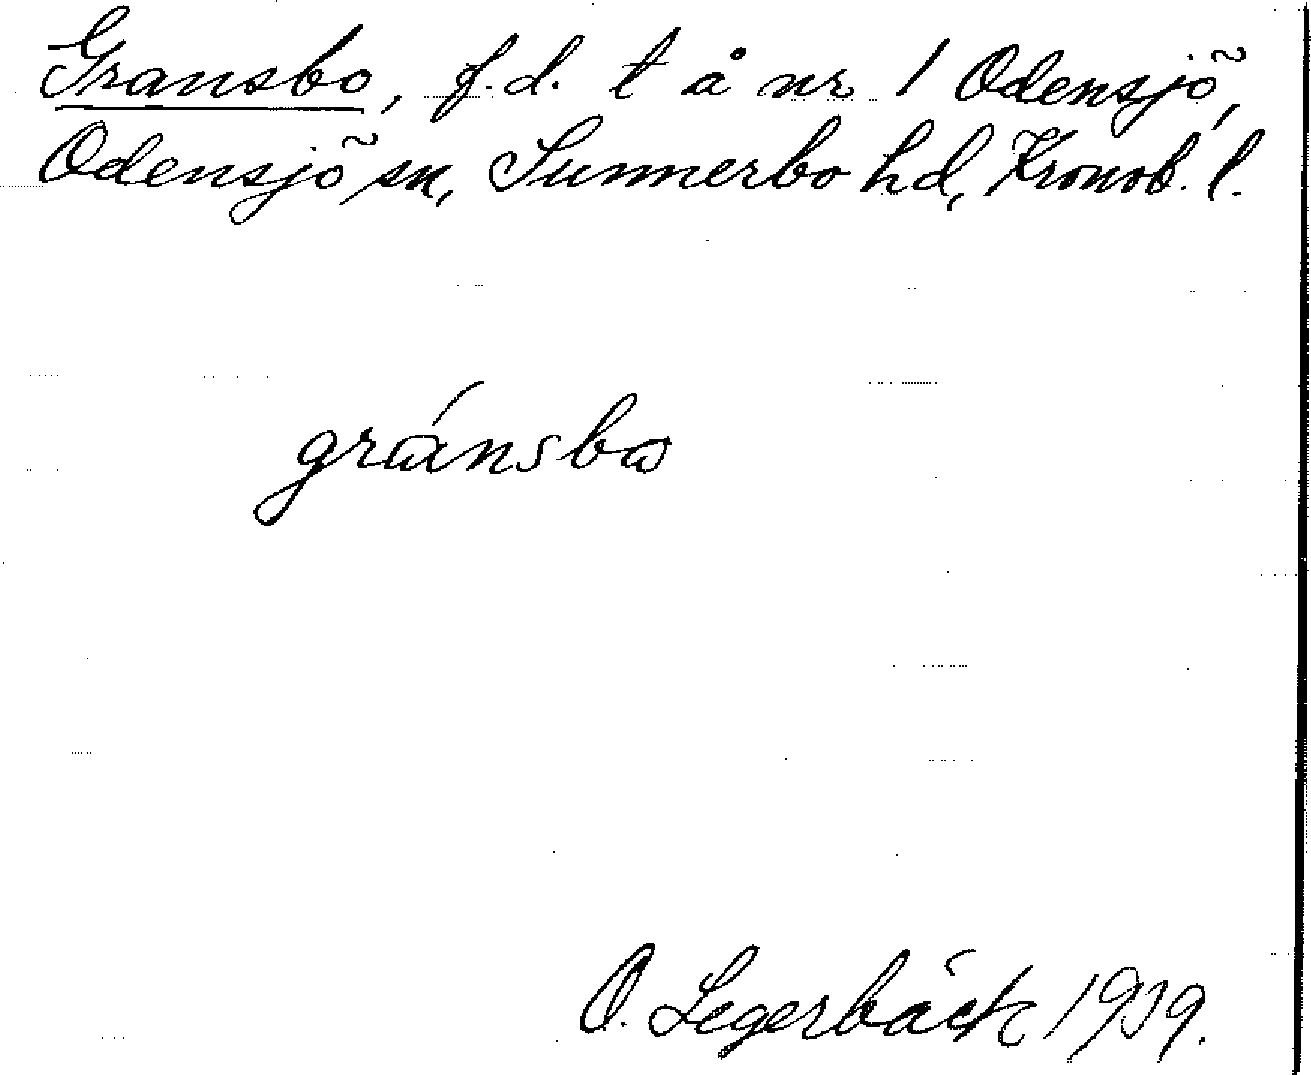 Gransbo, f.d. t å nr 1 Odensjö,
Odensjö sn, Sunnerbo hd, Kronob. l.
gránsbω
O. Legerbäck 1939.